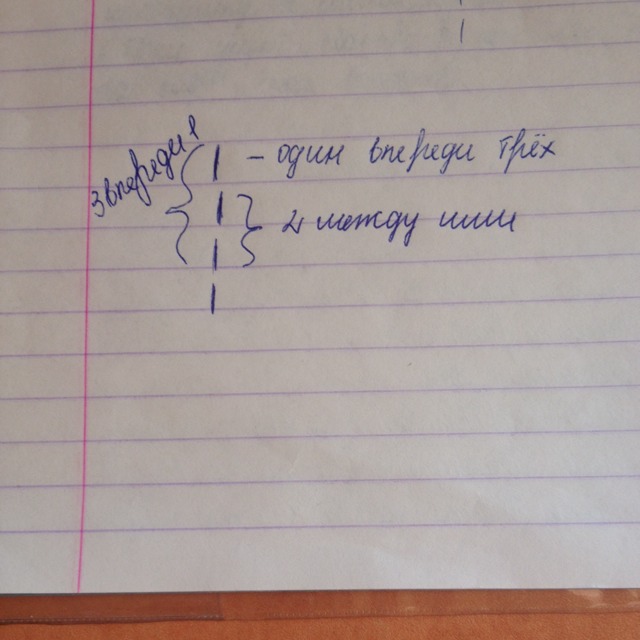 3 впереди 1
| – один впереди трёх
|
| 2 между ними
|